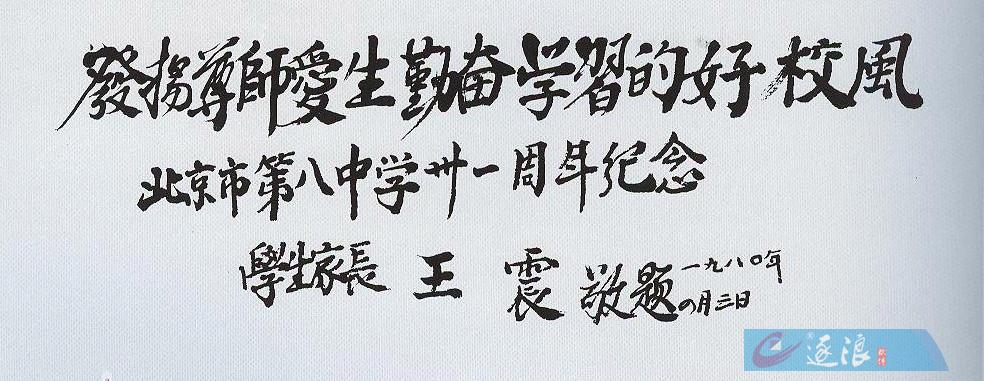 發揚尊師愛生勤奋学習的好校風
北京市第八中学卅一周年纪念
學生家長 王 震 敬题 一九八〇年
四月三日
逐浪